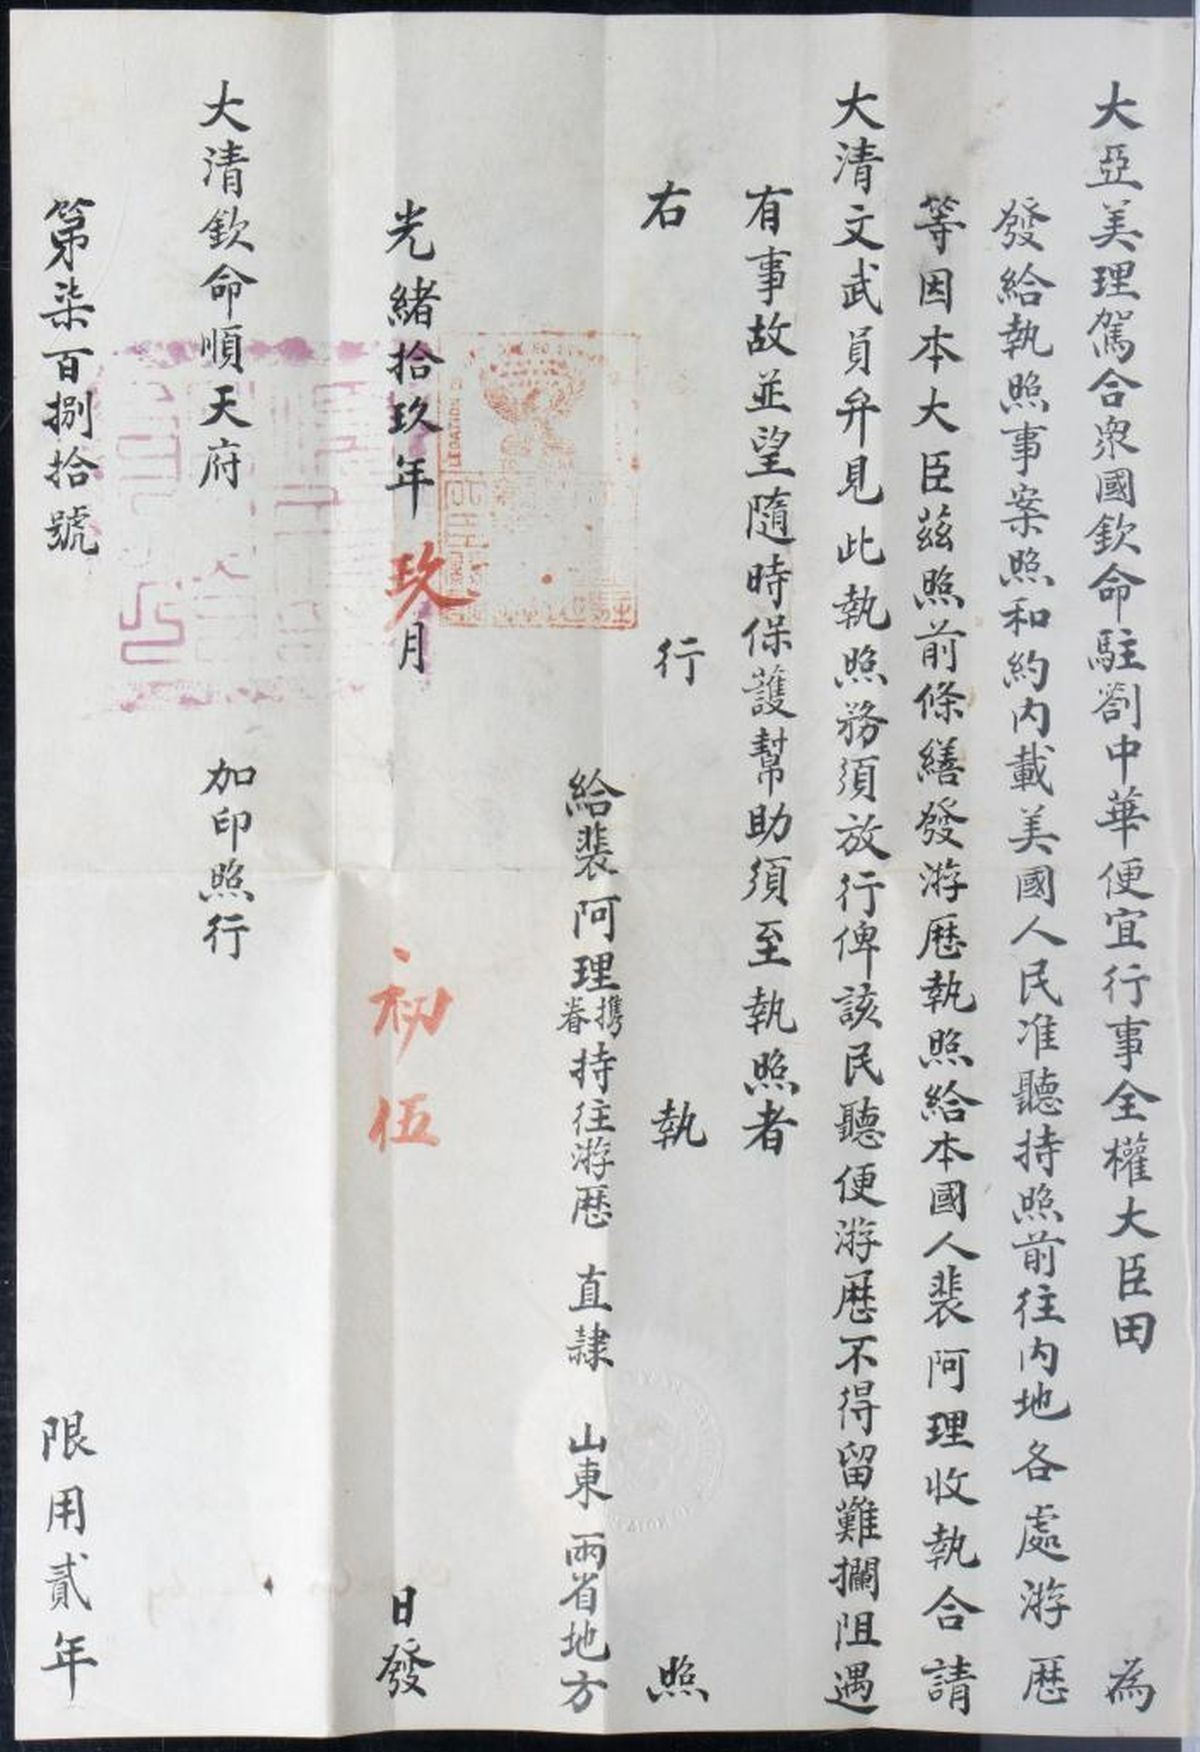 大亞美理駕合衆國欽命駐劄中華便宜行事全權大臣田 為
發給執照事案照和約內載美國人民准聽持照前往內地各處游歷
等因本大臣茲照前條繕發游歷執照給本國人裴阿理收執合請
大清文武員弁見此執照務須放行俾該民聽便游歷不得留難攔阻遇
有事故並望隨時保護幫助須至執照者
右行執照
給裴阿理攜眷持往游歷 直隸 山東兩省地方
光緒拾玖年玖月初伍日發
大清欽命順天府 加印照行
第柒百捌拾號 限用貳年